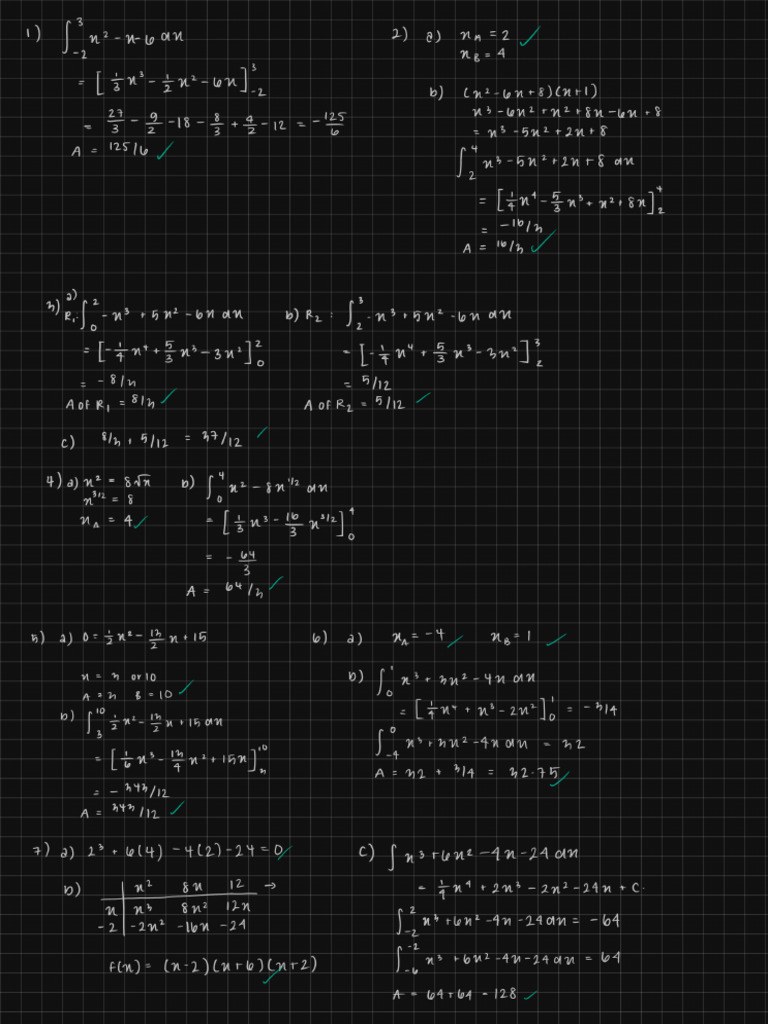 1) ∫₋₂³ x² - x - 6 dx
= [ 1/3 x³ - 1/2 x² - 6x ]₋₂³
= 27/3 - 9/2 - 18 - 8/3 + 4/2 - 12 = - 125/6
A = 125/6 ✓
2) a) x_A = 2 ✓
x_B = 4
b) (x² - 6x + 8)(x + 1)
x³ - 6x² + x² + 8x - 6x + 8
= x³ - 5x² + 2x + 8
∫₂⁴ x³ - 5x² + 2x + 8 dx
= [ 1/4 x⁴ - 5/3 x³ + x² + 8x ]₂⁴
= -16/3
A = 16/3 ✓
3) a) R₁: ∫₀² -x³ + 5x² - 6x dx
= [ -1/4 x⁴ + 5/3 x³ - 3x² ]₀²
= - 8/3
A of R₁ = 8/3 ✓
b) R₂ : ∫₂³ -x³ + 5x² - 6x dx
= [ -1/4 x⁴ + 5/3 x³ - 3x² ]₂³
= 5/12
A of R₂ = 5/12 ✓
c) 8/3 + 5/12 = 37/12 ✓
4) a) x² = 8√x
x^3/2 = 8
x_A = 4 ✓
b) ∫₀⁴ x² - 8x^1/2 dx
= [ 1/3 x³ - 16/3 x^3/2 ]₀⁴
= - 64/3
A = 64/3 ✓
5) a) 0 = 1/2 x² - 13/2 x + 15
x = 3 or 10
A = 3 B = 10 ✓
b) ∫₃¹⁰ 1/2 x² - 13/2 x + 15 dx
= [ 1/6 x³ - 13/4 x² + 15x ]₃¹⁰
= - 343/12
A = 343/12 ✓
6) a) x_A = -4 ✓ x_B = 1 ✓
b) ∫₀¹ x³ + 3x² - 4x dx
= [ 1/4 x⁴ + x³ - 2x² ]₀¹ = - 3/4
∫₋₄⁰ x³ + 3x² - 4x dx = 32
A = 32 + 3/4 = 32.75 ✓
7) a) 2³ + 6(4) - 4(2) - 24 = 0 ✓
b) x² 8x 12 →
x x³ 8x² 12x
-2 -2x² -16x -24
f(x) = (x-2)(x+6)(x+2) ✓
c) ∫ x³ + 6x² - 4x - 24 dx
= 1/4 x⁴ + 2x³ - 2x² - 24x + C.
∫₋₂² x³ + 6x² - 4x - 24 dx = - 64
∫₋₆⁻² x³ + 6x² - 4x - 24 dx = 64
A = 64 + 64 - 128 ✓